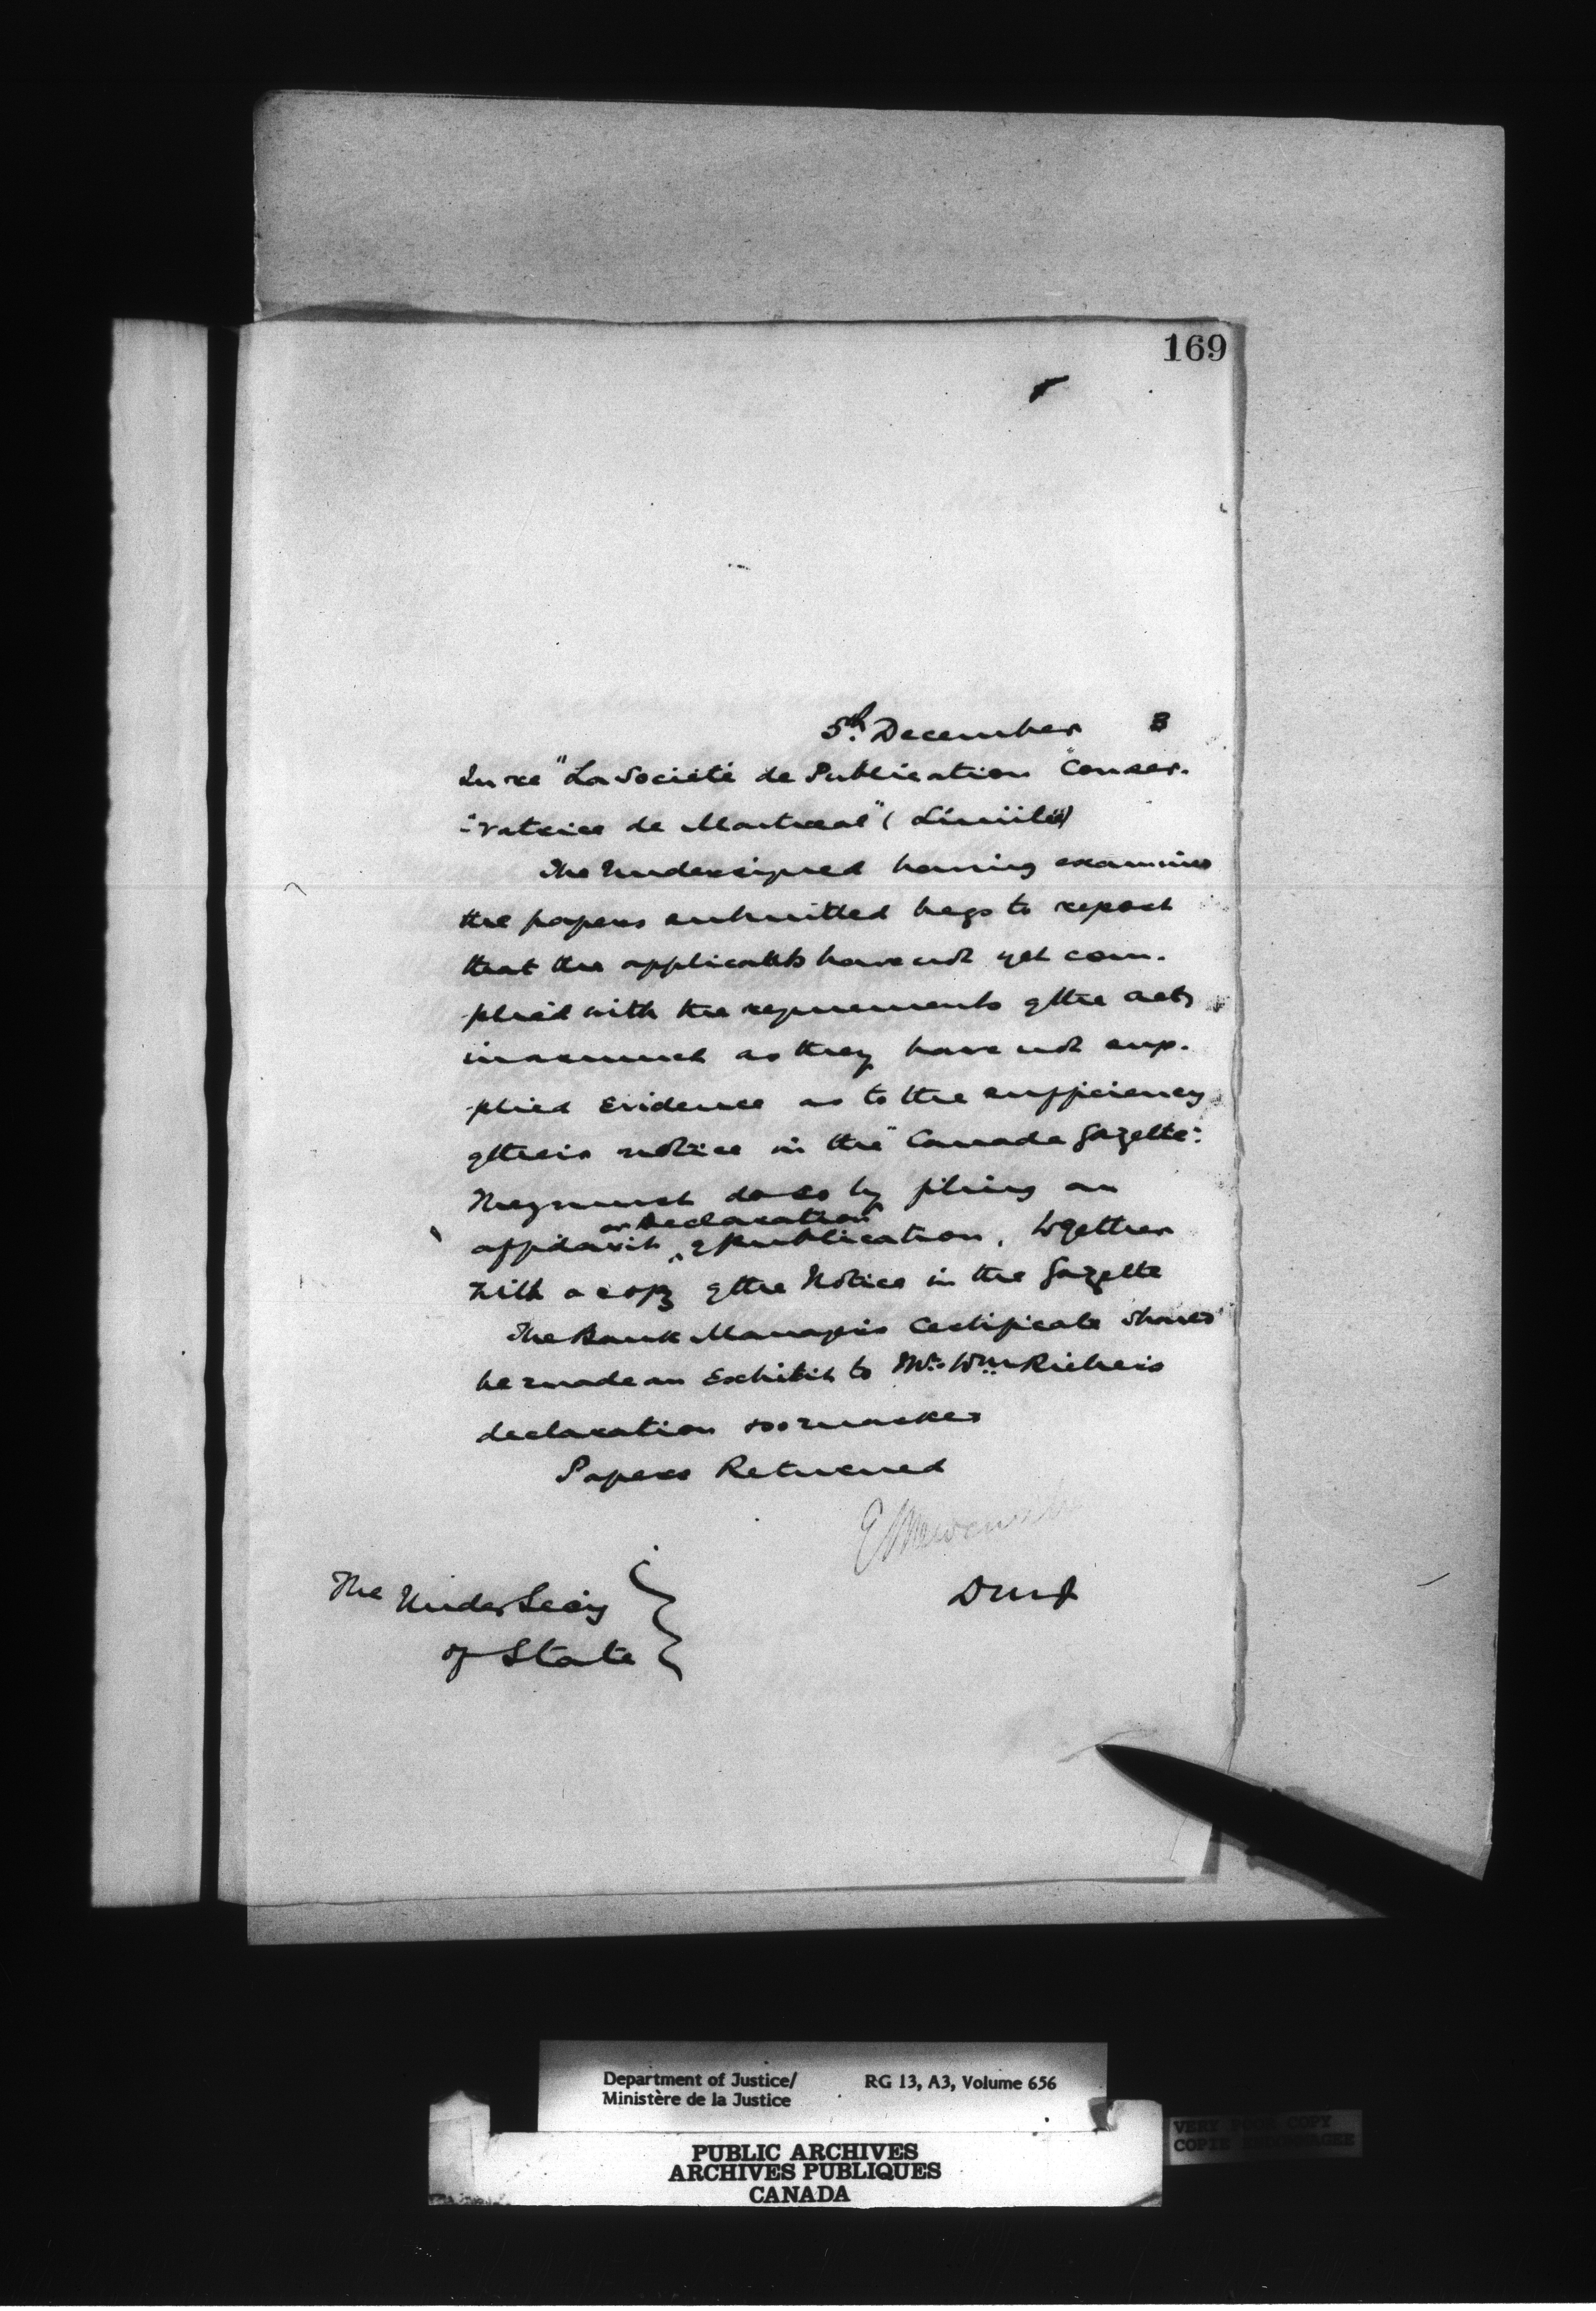 169
5th. December 3
In re "La Société de Publication "Conser-
-vatrice de Montreal" (Limitée)
The Undersigned having examined
the papers submitted begs to report
that the applicants have not yet com-
-plied with the requirements of the act,
inasmuch as they have not sup-
-plied evidence as to the sufficiency
of their notice in the "Canada Gazette".
They must do so by filing an
or Declaration
affidavit of publication, together
with a copy of the Notice in the Gazette
The Bank Manager's Certificate should
be made an Exhibit to Mr. Wm. Richer's
declaration & so marked
Papers Returned
E L Newcombe
DMJ
The Under Secy
of State
Department of Justice/
Ministère de la Justice
RG 13, A3, Volume 656
VERY POOR COPY
COPIE ENDOMMAGEE
PUBLIC ARCHIVES
ARCHIVES PUBLIQUES
CANADA